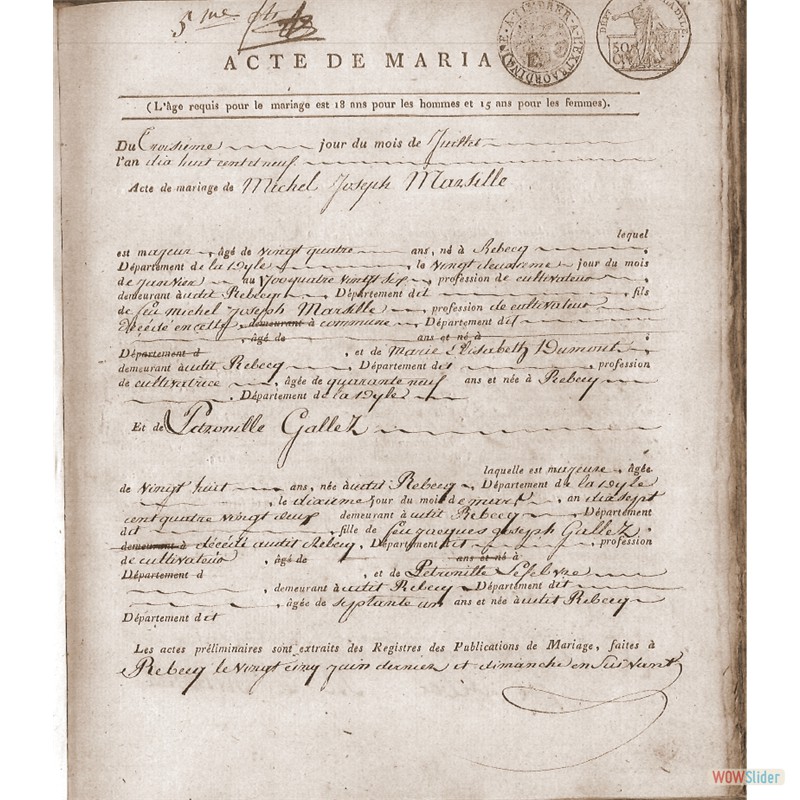 5 me
ACTE DE MARIA
A TIMBRER A L'EXTRAORDINAIRE
50
(L'âge requis pour le mariage est 18 ans pour les hommes et 15 ans pour les femmes).
Du troisieme jour du mois de Juillet
l'an dix huit cent et neuf
Acte de mariage de Michel Joseph Marsille
lequel
est majeur, âgé de vingt quatre ans, né à Rebecq,
Département de la Dyle, le vingt deuxieme jour du mois
de janvier profession de cultivateur
demeurant audit Rebecq, Département dit, fils
de feu michel joseph Marsille, profession de cultivateur
décédé en cette demeurant à commune, Département dit
, âgé de ans et né à
Département d, et de Marie Elisabeth Dumont,
demeurant audit Rebecq, Département dit, profession
de cultivatrice, âgée de quarante neuf ans et née à Rebecq
, Département de la Dyle
Et de Petronille Gallez
laquelle est majeure, âgée
de vingt huit ans, née audit Rebecq, Département de la Dyle
, le dixieme jour du mois de mars, an dix sept
cent quatre vingt demeurant à audit Rebecq, Département
dit, fille de feu jacques joseph Gallez,
demeurant à décédé audit Rebecq, Département dit, profession
de cultivateur, âgé de ans et né à
Département d, et de Petronille Lefebvre
, demeurant audit Rebecq, Département dit
, âgée de septante un ans et née audit Rebecq
Département dit
Les actes préliminaires sont extraits des Registres des Publications de Mariage, faites à
Rebecq le vingt cinq juin dernier et dimanche en suivant
WOWSlider